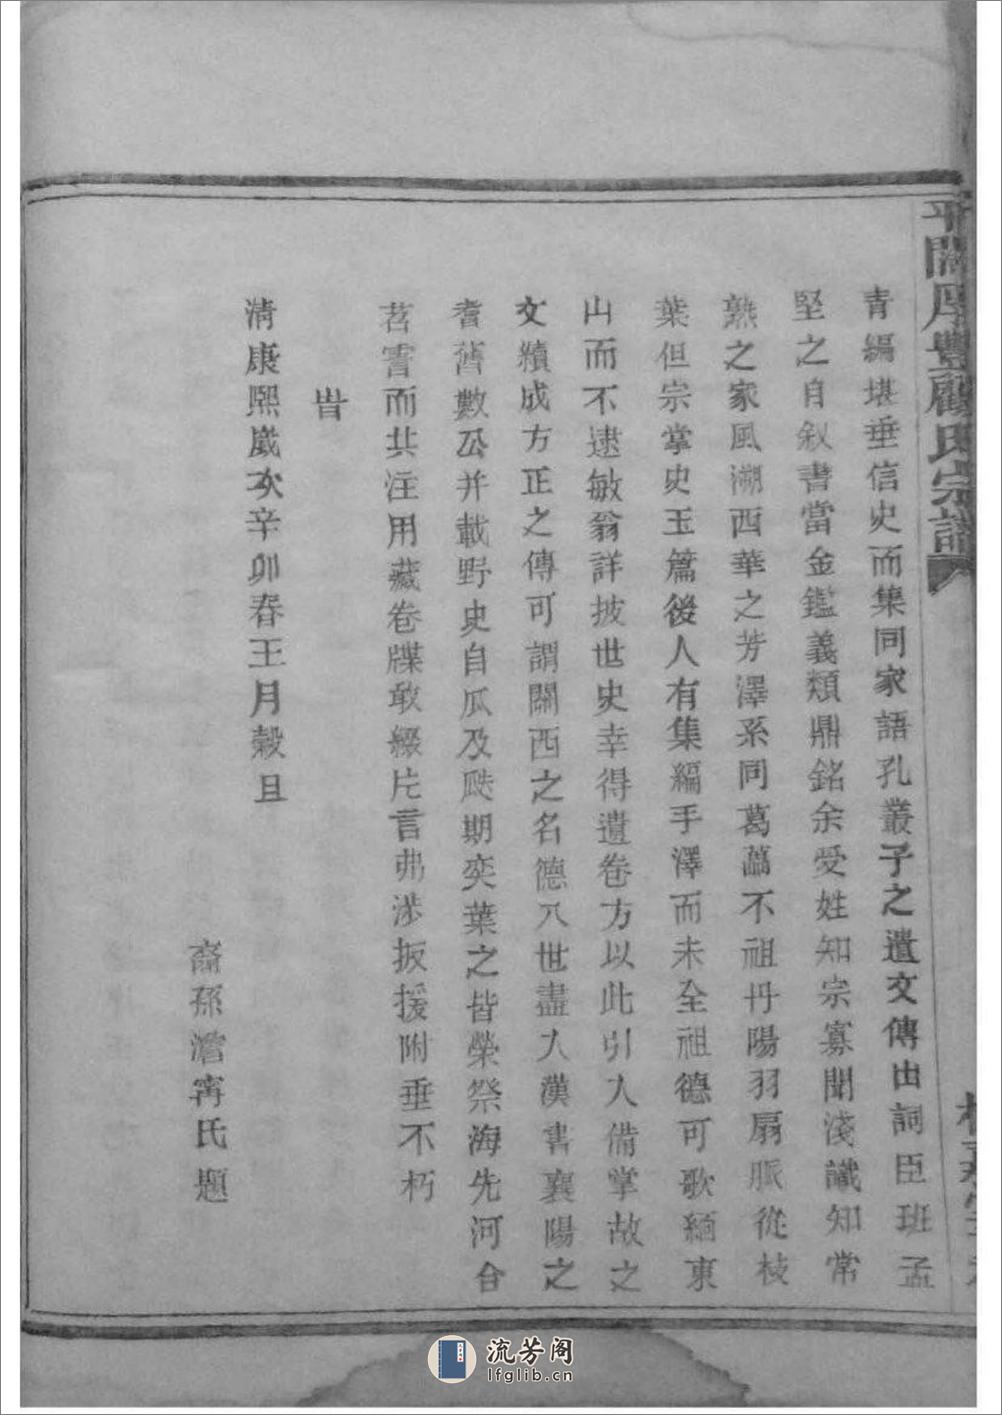 平開厚豐顧氏宗譜
青編堪垂信史而集同家語孔叢子之遺文傳出詞臣班孟
堅之自叙書當金鑑義類鼎銘余受姓知宗寡聞淺識知常
熟之家風溯西華之芳澤系同葛藟不祖丹陽羽扇脈從枝
葉但宗掌史玉篇後人有集編手澤而未全祖德可歌緬東
山而不逮敏翁詳披世史幸得遺卷方以此引人備掌故之
文續成方正之傳可謂關西之名德八世盡人漢書襄陽之
耆舊數公并載野史自瓜及瓞期奕葉之皆榮祭海先河合
苕霅而共注用藏卷牒敢綴片言弗涉扳援附垂不朽
旹
清康熙歲次辛卯春王月穀旦
裔孫澹寗氏題
流芳阁
lfglib.cn